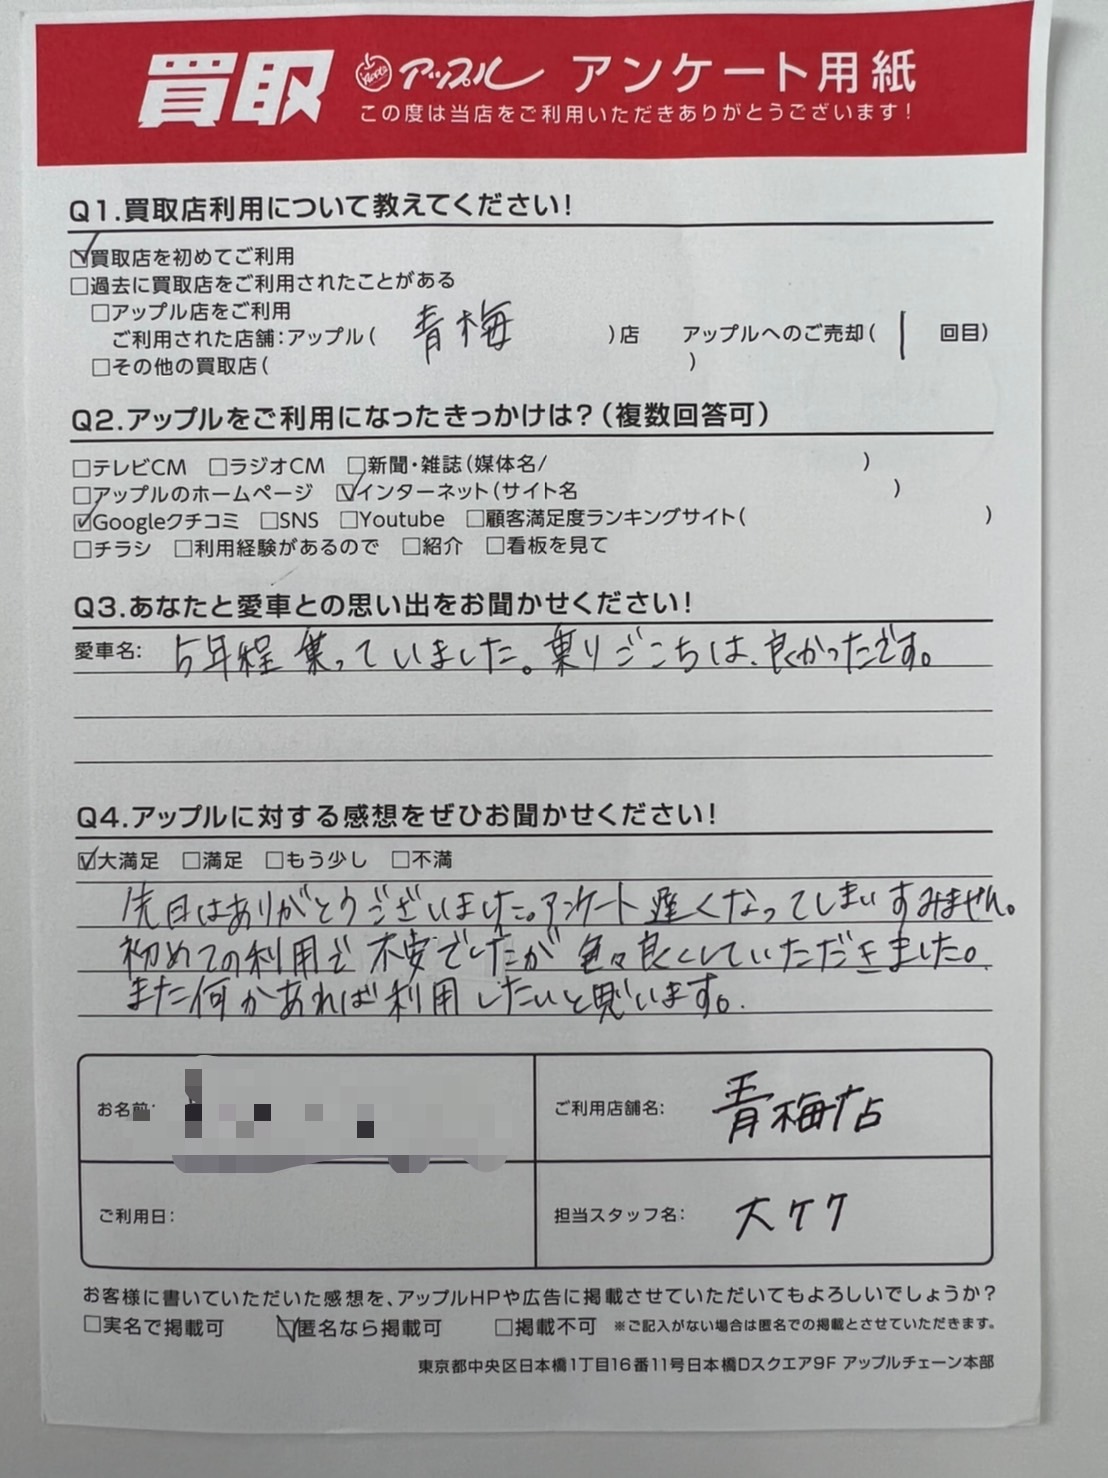 買取 Apple アップル アンケート用紙
この度は当店をご利用いただきありがとうございます!
Q1.買取店利用について教えてください!
☑買取店を初めてご利用
□過去に買取店をご利用されたことがある
□アップル店をご利用
ご利用された店舗:アップル( 青梅 )店 アップルへのご売却( 1 回目)
□その他の買取店( )
Q2.アップルをご利用になったきっかけは?(複数回答可)
□テレビCM □ラジオCM □新聞・雑誌(媒体名/ )
□アップルのホームページ ☑インターネット(サイト名 )
☑Googleクチコミ □SNS □Youtube □顧客満足度ランキングサイト( )
□チラシ □利用経験があるので □紹介 □看板を見て
Q3.あなたと愛車との思い出をお聞かせください!
愛車名: 5年程乗っていました。乗りごこちは、良かったです。
Q4.アップルに対する感想をぜひお聞かせください!
☑大満足 □満足 □もう少し □不満
先日はありがとうございました。アンケート遅くなってしまいすみません。
初めての利用で不安でしたが色々良くしていただきました。
また何かあれば利用したいと思います。
お名前: ご利用店舗名: 青梅店
ご利用日: 担当スタッフ名: 大ケク
お客様に書いていただいた感想を、アップルHPや広告に掲載させていただいてもよろしいでしょうか?
□実名で掲載可 ☑匿名なら掲載可 □掲載不可 ※ご記入がない場合は匿名での掲載とさせていただきます。
東京都中央区日本橋1丁目16番11号日本橋Dスクエア9F アップルチェーン本部